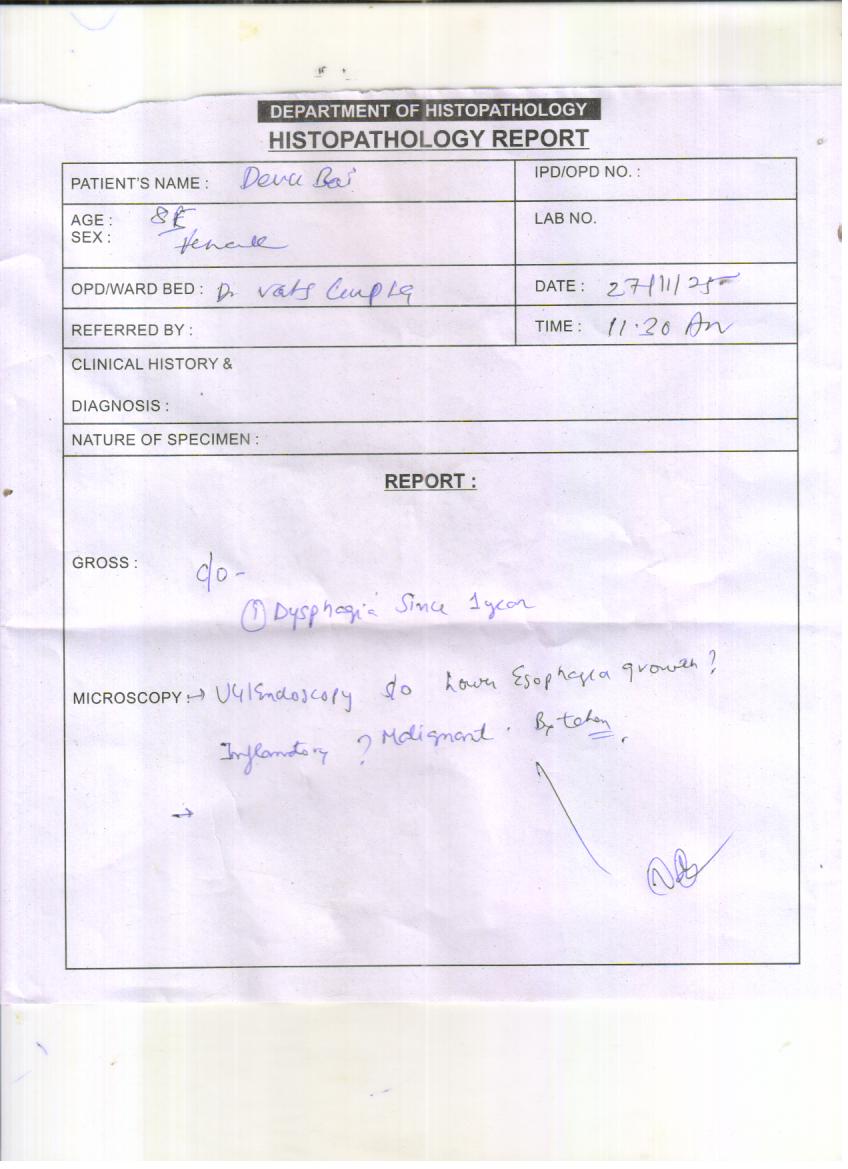 DEPARTMENT OF HISTOPATHOLOGY
HISTOPATHOLOGY REPORT
PATIENT'S NAME : Devu Bai
IPD/OPD NO. :
AGE :
SEX : female
LAB NO.
OPD/WARD BED : Dr Vats Gupta
DATE : 27/11/25
REFERRED BY :
TIME : 11.30 Am
CLINICAL HISTORY &
DIAGNOSIS :
NATURE OF SPECIMEN :
REPORT :
GROSS : c/o -
① Dysphagia Since 1 year
MICROSCOPY :→ UGI Endoscopy s/o Lower Esophagea growth ?
Inflamatory ? Malignant. Bx taken.
→